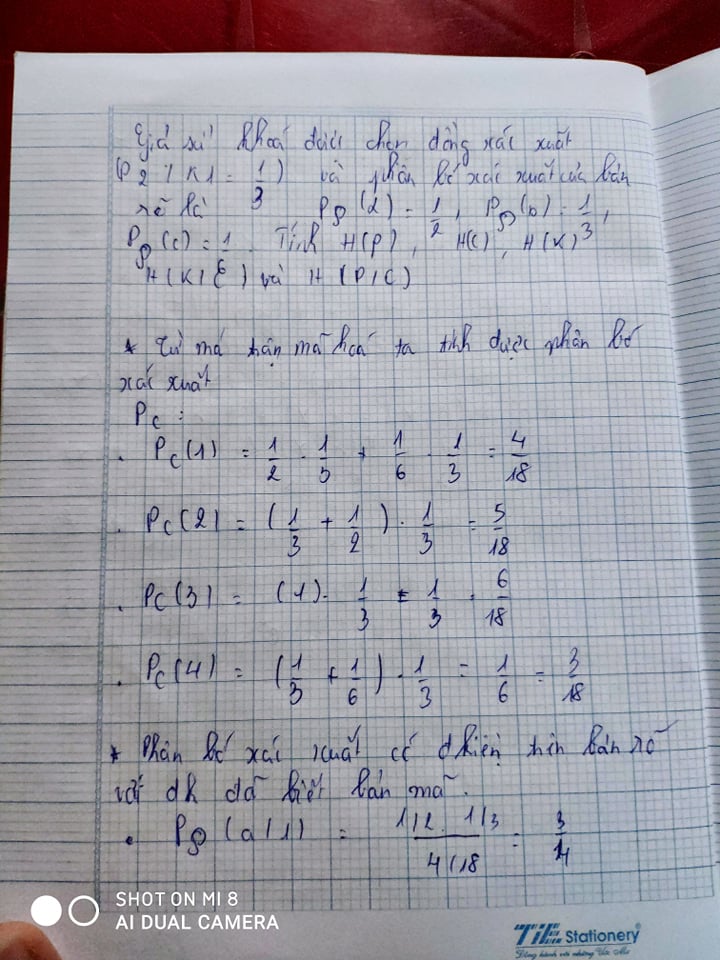 Giả sử khoá được chọn đồng xác xuất
(P 2 / K1 = 1/3) và phân bố xác xuất của bản
rõ là P℘(a) = 1/2, P℘(b) = 1/3,
P℘(c) = 1/6. Tính H(P), H(C), H(K)
H(K/C) và H(P/C)
* Từ má trận mã hoá ta tính được phân bố
xác xuất
Pc :
. Pc(1) = 1/2 . 1/3 + 1/6 . 1/3 = 4/18
. Pc(2) = (1/3 + 1/2) . 1/3 = 5/18
. Pc(3) = (1) . 1/3 = 1/3 = 6/18
. Pc(4) = (1/3 + 1/6) . 1/3 = 1/6 = 3/18
* Phân bố xác xuất có đkiện trên bản rõ
với đk đã biết bản mã.
. P℘(a/1) = 1/2 . 1/3 / 4/18 = 3/4
SHOT ON MI 8
AI DUAL CAMERA
TiE Stationery
Đồng hành với những Ước Mơ